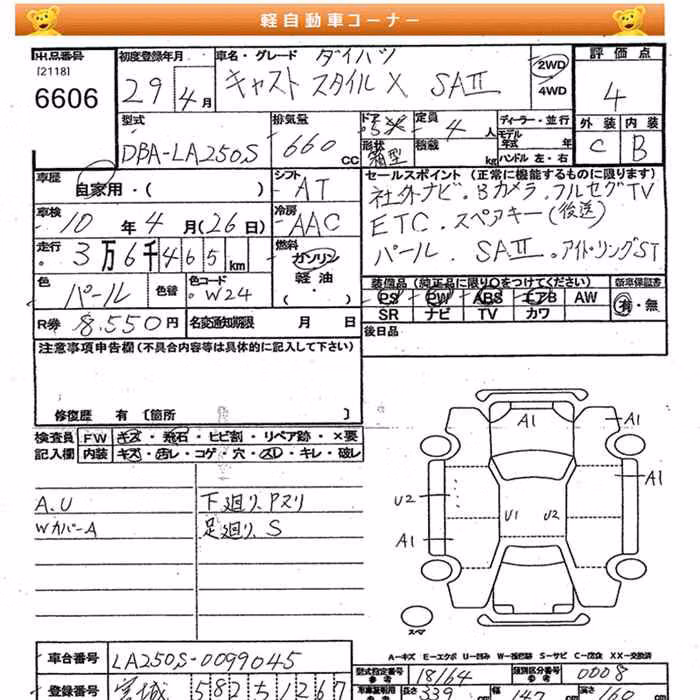 軽自動車コーナー
出品番号 初度登録年月 車名・グレード ダイハツ 評価点
[2118] 6606 29年4月 キャスト スタイル X SAⅡ 2WD 4WD 4
型式 排気量 ドア 5 定員 4人 ディーラー・並行 外装 内装
DBA-LA250S 660cc 形状 箱型 積載 kg モデル年式 年 ハンドル 左・右 C B
車歴 自家用・( ) シフト AT セールスポイント (正常に機能するものに限ります)
社外ナビ・Bカメラ・フルセグTV
車検 10年4月(26日) 冷房 AAC ETC・スペアキー(後送)
走行 3万6千465km 燃料 ガソリン 軽油 ( ) パール・SAⅡ・アイドリングST
色 パール 色替 色コード W24 装備品(純正品に限り〇をつけてください) 新車保証書
PS PW ABS エアB AW 有・無
R券 8,550円 名変通知期限 月 日 SR ナビ TV カワ
注意事項申告欄(不具合内容等は具体的に記入して下さい) 後日品
修復歴 有 〔箇所 〕
検査員 FW キズ・飛石・ヒビ割・リペア跡・×要
記入欄 内装 キズ・汚レ・コゲ・穴・スレ・キレ・破レ
A.U 下廻り、Pスリ
Wカバー A 足廻り、S
A1 A1
A1
U2 U1 U2
A1
スペア
A-キズ E-エクボ U-凹み W-補修跡 S-サビ C-腐食 XX-交換済
車台番号 LA250S-0099045 型式指定番号 参考 18164 類別区分番号 参考 0008
登録番号 宮城 582 51267 長さ 339 幅 147 高さ 160